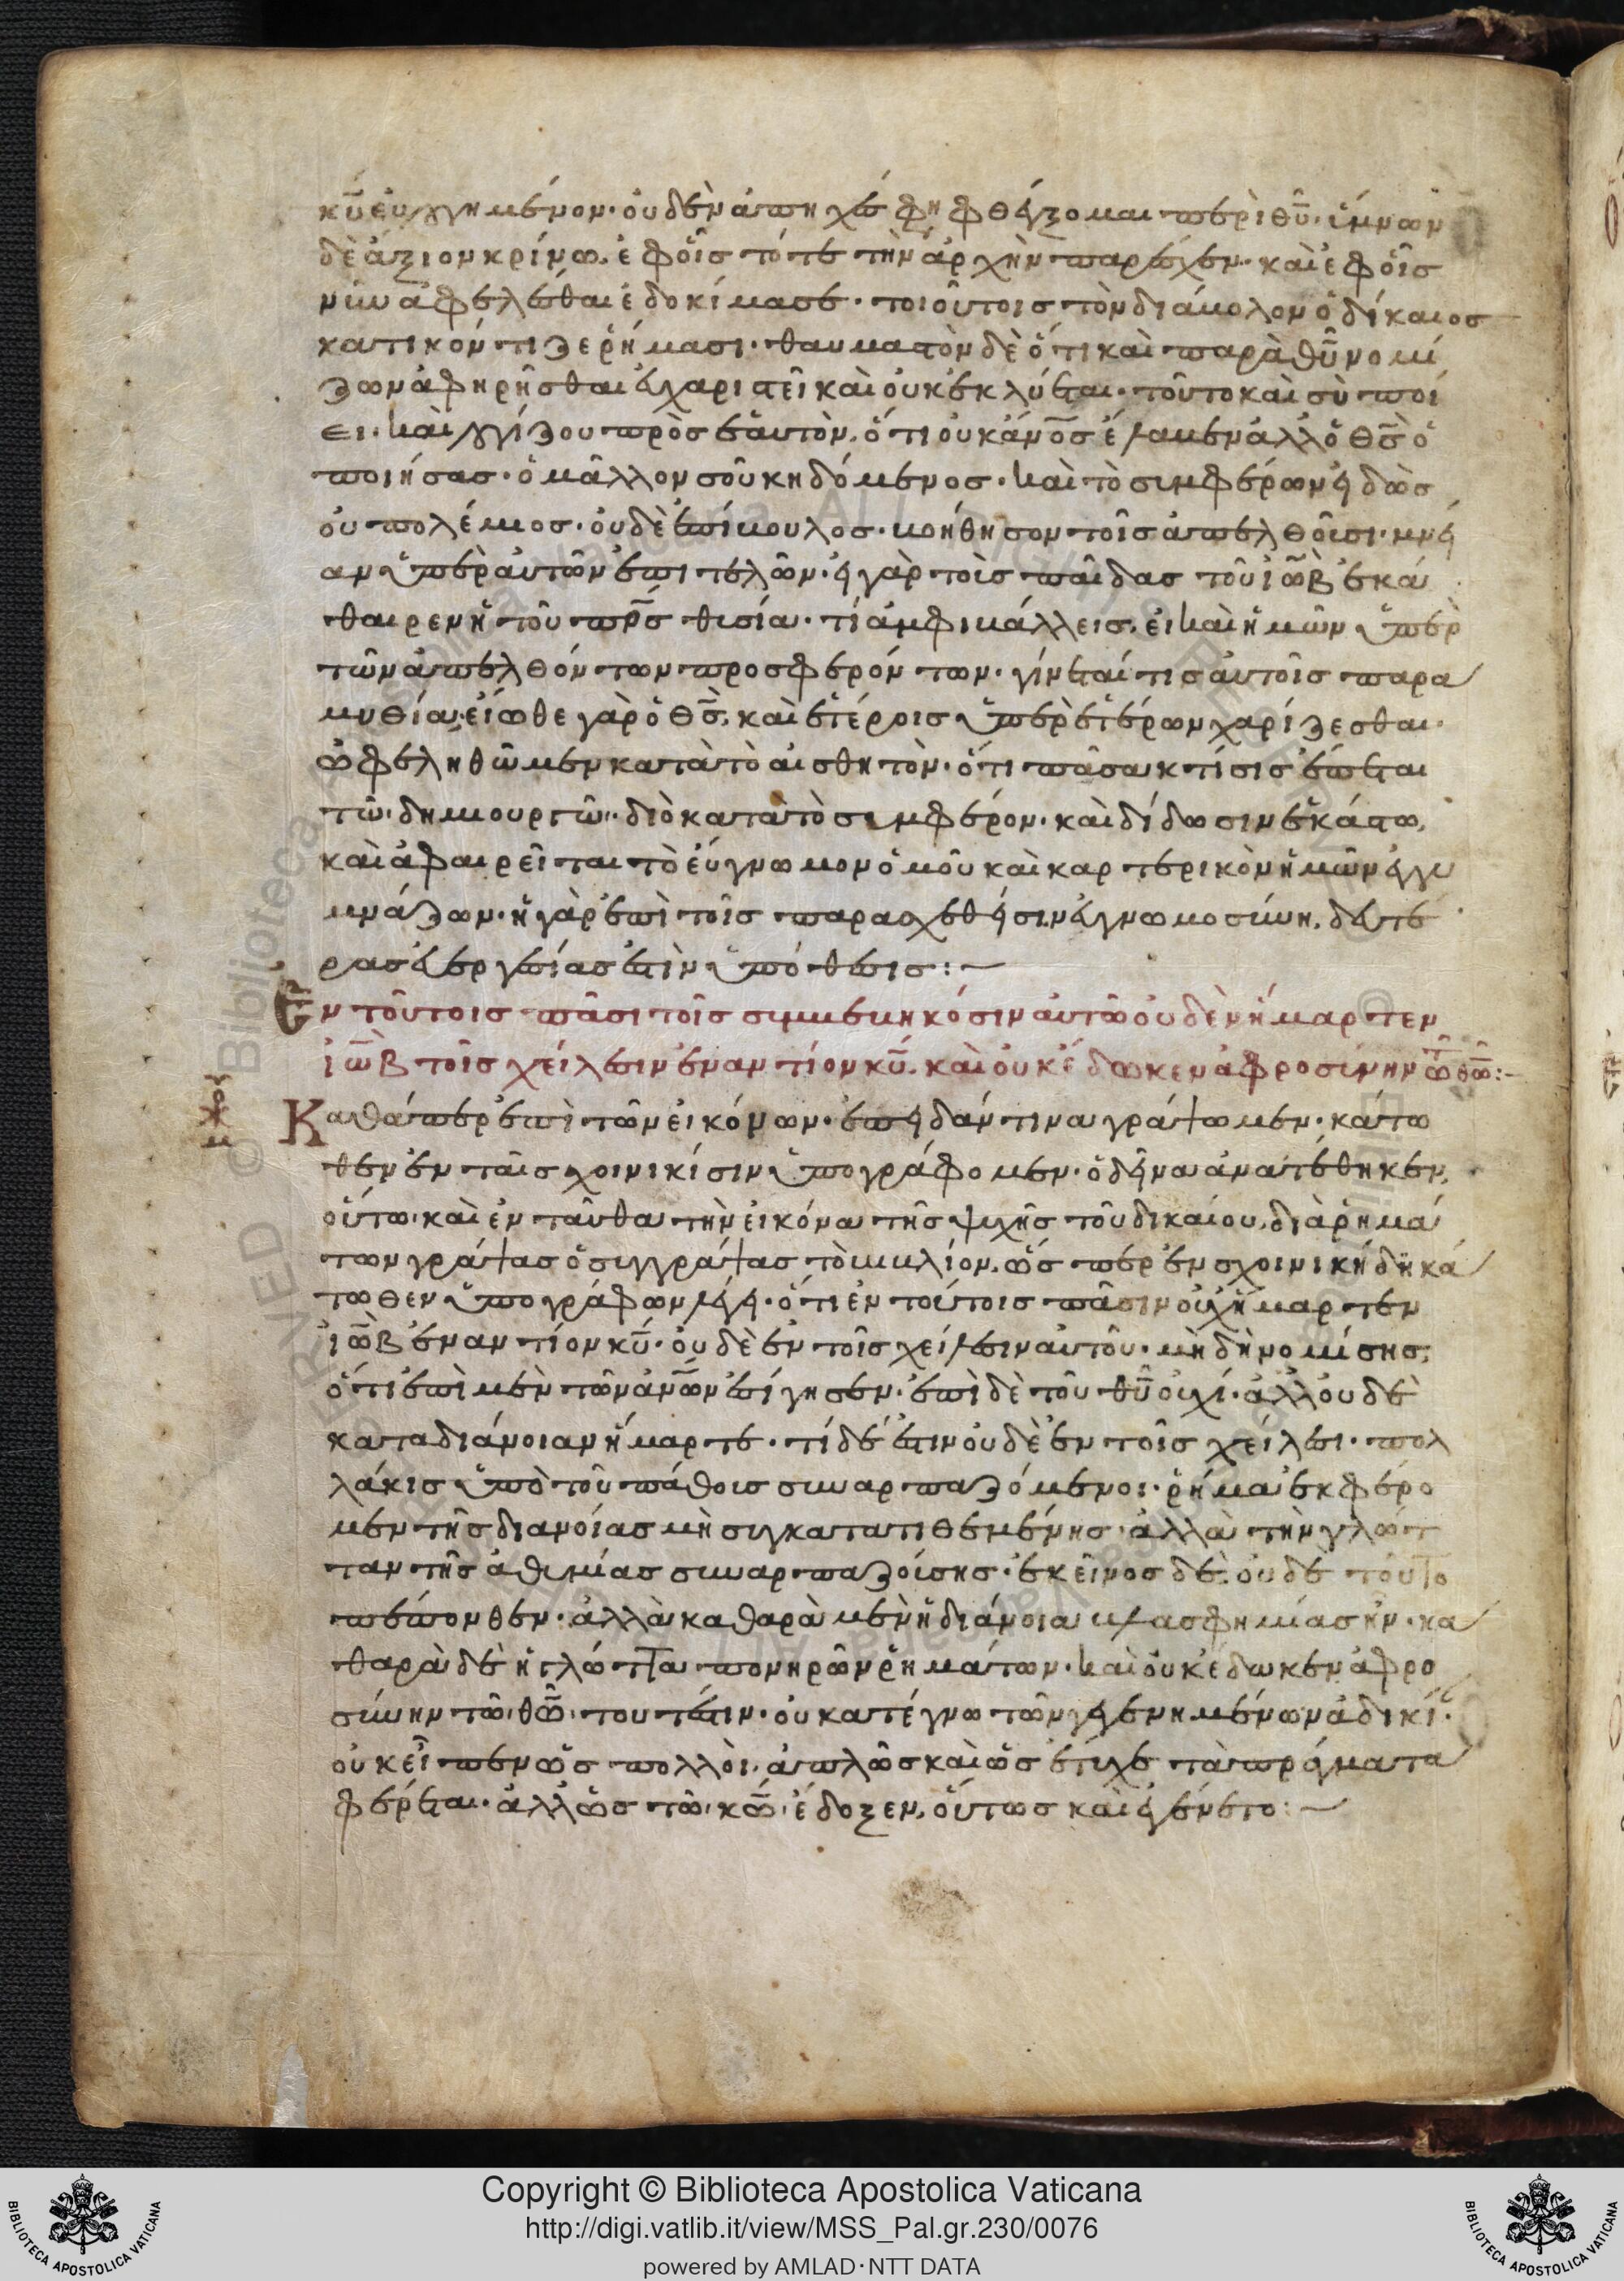 κ̅υ̅ εὐλογημένον· οὐδὲν ἀπηχὲς φη φθέγξομαι περὶ θ̅υ̅· ὕμνων
δὲ ἄξιον κρίνω, ἐφ οἷς τότε τὴν ἀρχὴν παρέσχεν· καὶ ἐφ οἷς
νῦν ἀφελέσθαι ἐδοκίμασε· τοιούτοις τὸν διάβολον ὁ δίκαιος
κατηκόντιζε ῥήμασι· θαυμαστὸν δὲ ὅτι καὶ παρὰ θ̅υ̅ νομί
ζων ἀφηρῆσθαι εὐχαριστεῖ καὶ οὐκ ἐκλύεται· τοῦτο καὶ σὺ ποί
ει· καὶ λογίζου πρὸς ἑαυτὸν, ὅτι οὐκ ἄν̅ο̅ς ἔλαβεν ἀλλ ὁ θ̅ς̅ ὁ
ποιήσας· ὁ μᾶλλον σοῦ κηδόμενος· καὶ τὸ συμφέρων εἰδὼς
οὐ πολέμιος· οὐδὲ ἐπίβουλος· βοήθησον τοῖς ἀπελθοῦσι· μνεί
αν ὑπὲρ αὐτῶν ἐπιτελῶν· εἰ γὰρ τοὺς παῖδας τοῦ ἰὼβ ἐκά
θαιρεν ἡ τοῦ π̅ρ̅ς̅ θυσία· τί ἀμφιβάλλεις, εἰ καὶ ἡμῶν ὑπὲρ
τῶν ἀπελθόντων προσφερόντων· γίνεταί τις αὐτοῖς παρα
μυθία· εἴωθε γὰρ ὁ θ̅ς̅, καὶ ἑτέροις ὑπὲρ ἑτέρων χαρίζεσθαι·
ὠφεληθῶμεν κατὰ τὸ αἰσθητὸν· ὅτι πᾶσα κτίσις ἕπεται
τῶ δημιουργῶ· διὸ κατὰ τὸ συμφέρον· καὶ δίδωσιν ἑκάστω,
καὶ ἀφαιρεῖται τὸ εὔγνωμον ὁμοῦ καὶ καρτερικὸν ἡμῶν ἐγγυ
μνάζων· ἡ γὰρ ἐπὶ τοῖς παρασχεθεῖσιν εὐγνωμοσύνη, δευτέ
ρας εὐεργεσίας ἐστὶν ὑπόθεσις:–
Ἐν τούτοις πᾶσι τοῖς συμβεβηκόσιν αὐτῶ οὐδὲν ἥμαρτεν
ἰὼβ τοῖς χείλεσιν ἐναντίον κ̅υ̅, καὶ οὐκ ἔδωκεν ἀφροσύνην τῶ θ̅ω̅:–
Καθάπερ ἐπὶ τῶν εἰκόνων· ἐπειδάν τινα γράψωμεν· κάτω
θεν ἐν ταῖς χοινικίσιν ὑπογράφομεν· ὁ δεῖνα ἀνατέθηκεν,
οὕτω· καὶ ἐνταῦθα τὴν εἰκόνα τῆς ψυχῆς τοῦ δικαίου, διὰ ῥημά
των γράψας ὁ συγγράψας τὸ βιβλίον, ὥσπερ ἐν σχοινικῆ δὴ κά
τωθεν ὑπογράφων λέγει· ὅτι ἐν τούτοις πᾶσιν οὐχ ἥμαρτεν
ἰὼβ ἐναντίον κ̅υ̅· οὐδὲ ἐν τοῖς χείλεσιν αὐτοῦ· μὴ δὴ νομίσης,
ὅτι ἐπὶ μὲν τῶν ἀν̅ω̅ν ἐσίγησεν· ἐπὶ δὲ τοῦ θ̅υ̅ οὐχί· ἀλλ οὐδὲ
κατα διάνοιαν ἥμαρτε· τί δέ ἐστιν οὐδὲ ἐν τοῖς χείλεσι· πολ
λάκις ὑπὸ τοῦ πάθους συναρπαζόμενοι· ῥῆμα ἐκφέρο
μεν τῆς διανοίας μὴ συγκατατιθεμένης· ἀλλὰ τὴν γλώτ
ταν τῆς ἀθυμίας συναρπαζούσης· ἐκεῖνος δὲ οὐδε τοῦτο
πέπονθεν· ἀλλὰ καθαρὰ μὲν ἡ διάνοια βλασφημίας ἦν· κα
θαρὰ δὲ ἡ γλώττα πονηρῶν ῥημάτων· καὶ οὐκ ἔδωκεν ἀφρο
σύνην τῶ θ̅ω̅· τουτέστιν· οὐ κατέγνω τῶν γεγενημένων ἀδικί·
οὐκ εἶπεν ὡς πολλοὶ, ἁπλῶς καὶ ὡς ἔτυχε τὰ πράγματα
φέρεται· ἀλλ ὡς τῶ κ̅ω̅ ἔδοξεν, οὕτως καὶ ἐγένετο:–
Copyright © Biblioteca Apostolica Vaticana
http://digi.vatlib.it/view/MSS_Pal.gr.230/0076
powered by AMLAD·NTT DATA